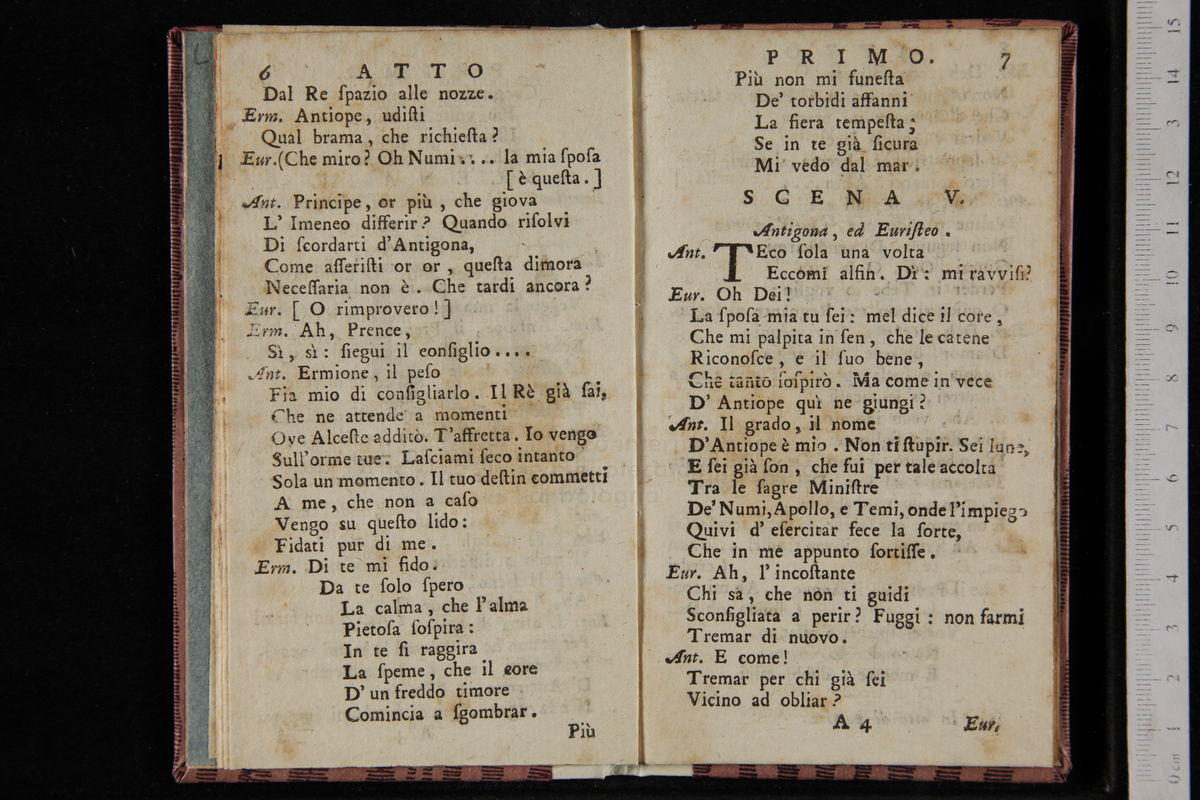 6 ATTO
Dal Re ſpazio alle nozze.
Erm. Antiope, udiſti
Qual brama, che richieſta?
Eur. (Che miro? Oh Numi.... la mia ſpoſa
[è queſta.]
Ant. Principe, or più, che giova
L' Imeneo differir? Quando riſolvi
Di ſcordarti d'Antigona,
Come aſſeriſti or or, queſta dimora
Neceſſaria non è. Che tardi ancora?
Eur. [O rimprovero!]
Erm. Ah, Prence,
Sì, sì: ſiegui il conſiglio....
Ant. Ermione, il peſo
Fia mio di conſigliarlo. Il Rè già ſai,
Che ne attende a momenti
Ove Alceſte additò. T'affretta. Io vengo
Sull'orme tue. Laſciami ſeco intanto
Sola un momento. Il tuo deſtin commetti
A me, che non a caſo
Vengo su queſto lido:
Fidati pur di me.
Erm. Di te mi fido.
Da te ſolo ſpero
La calma, che l'alma
Pietoſa ſoſpira:
In te ſi raggira
La ſpeme, che il core
D' un freddo timore
Comincia a ſgombrar.
Più
PRIMO. 7
Più non mi funeſta
De' torbidi affanni
La fiera tempeſta;
Se in te già ſicura
Mi vedo dal mar.
SCENA V.
Antigona, ed Euriſteo.
Ant. TEco ſola una volta
Eccomi alfin. Dì: mi ravviſi?
Eur. Oh Dei!
La ſpoſa mia tu ſei: mel dice il core,
Che mi palpita in ſen, che le catene
Riconoſce, e il ſuo bene,
Che tanto ſoſpirò. Ma come in vece
D' Antiope quì ne giungi?
Ant. Il grado, il nome
D'Antiope è mio. Non ti ſtupir. Sei lune,
E ſei già ſon, che fui per tale accolta
Tra le ſagre Miniſtre
De' Numi, Apollo, e Temi, onde l'impiego
Quivi d' eſercitar fece la ſorte,
Che in me appunto ſortiſſe.
Eur. Ah, l' incoſtante
Chi sa, che non ti guidi
Sconſigliata a perir? Fuggi: non farmi
Tremar di nuovo.
Ant. E come!
Tremar per chi già ſei
Vicino ad obliar?
A 4 Eur.